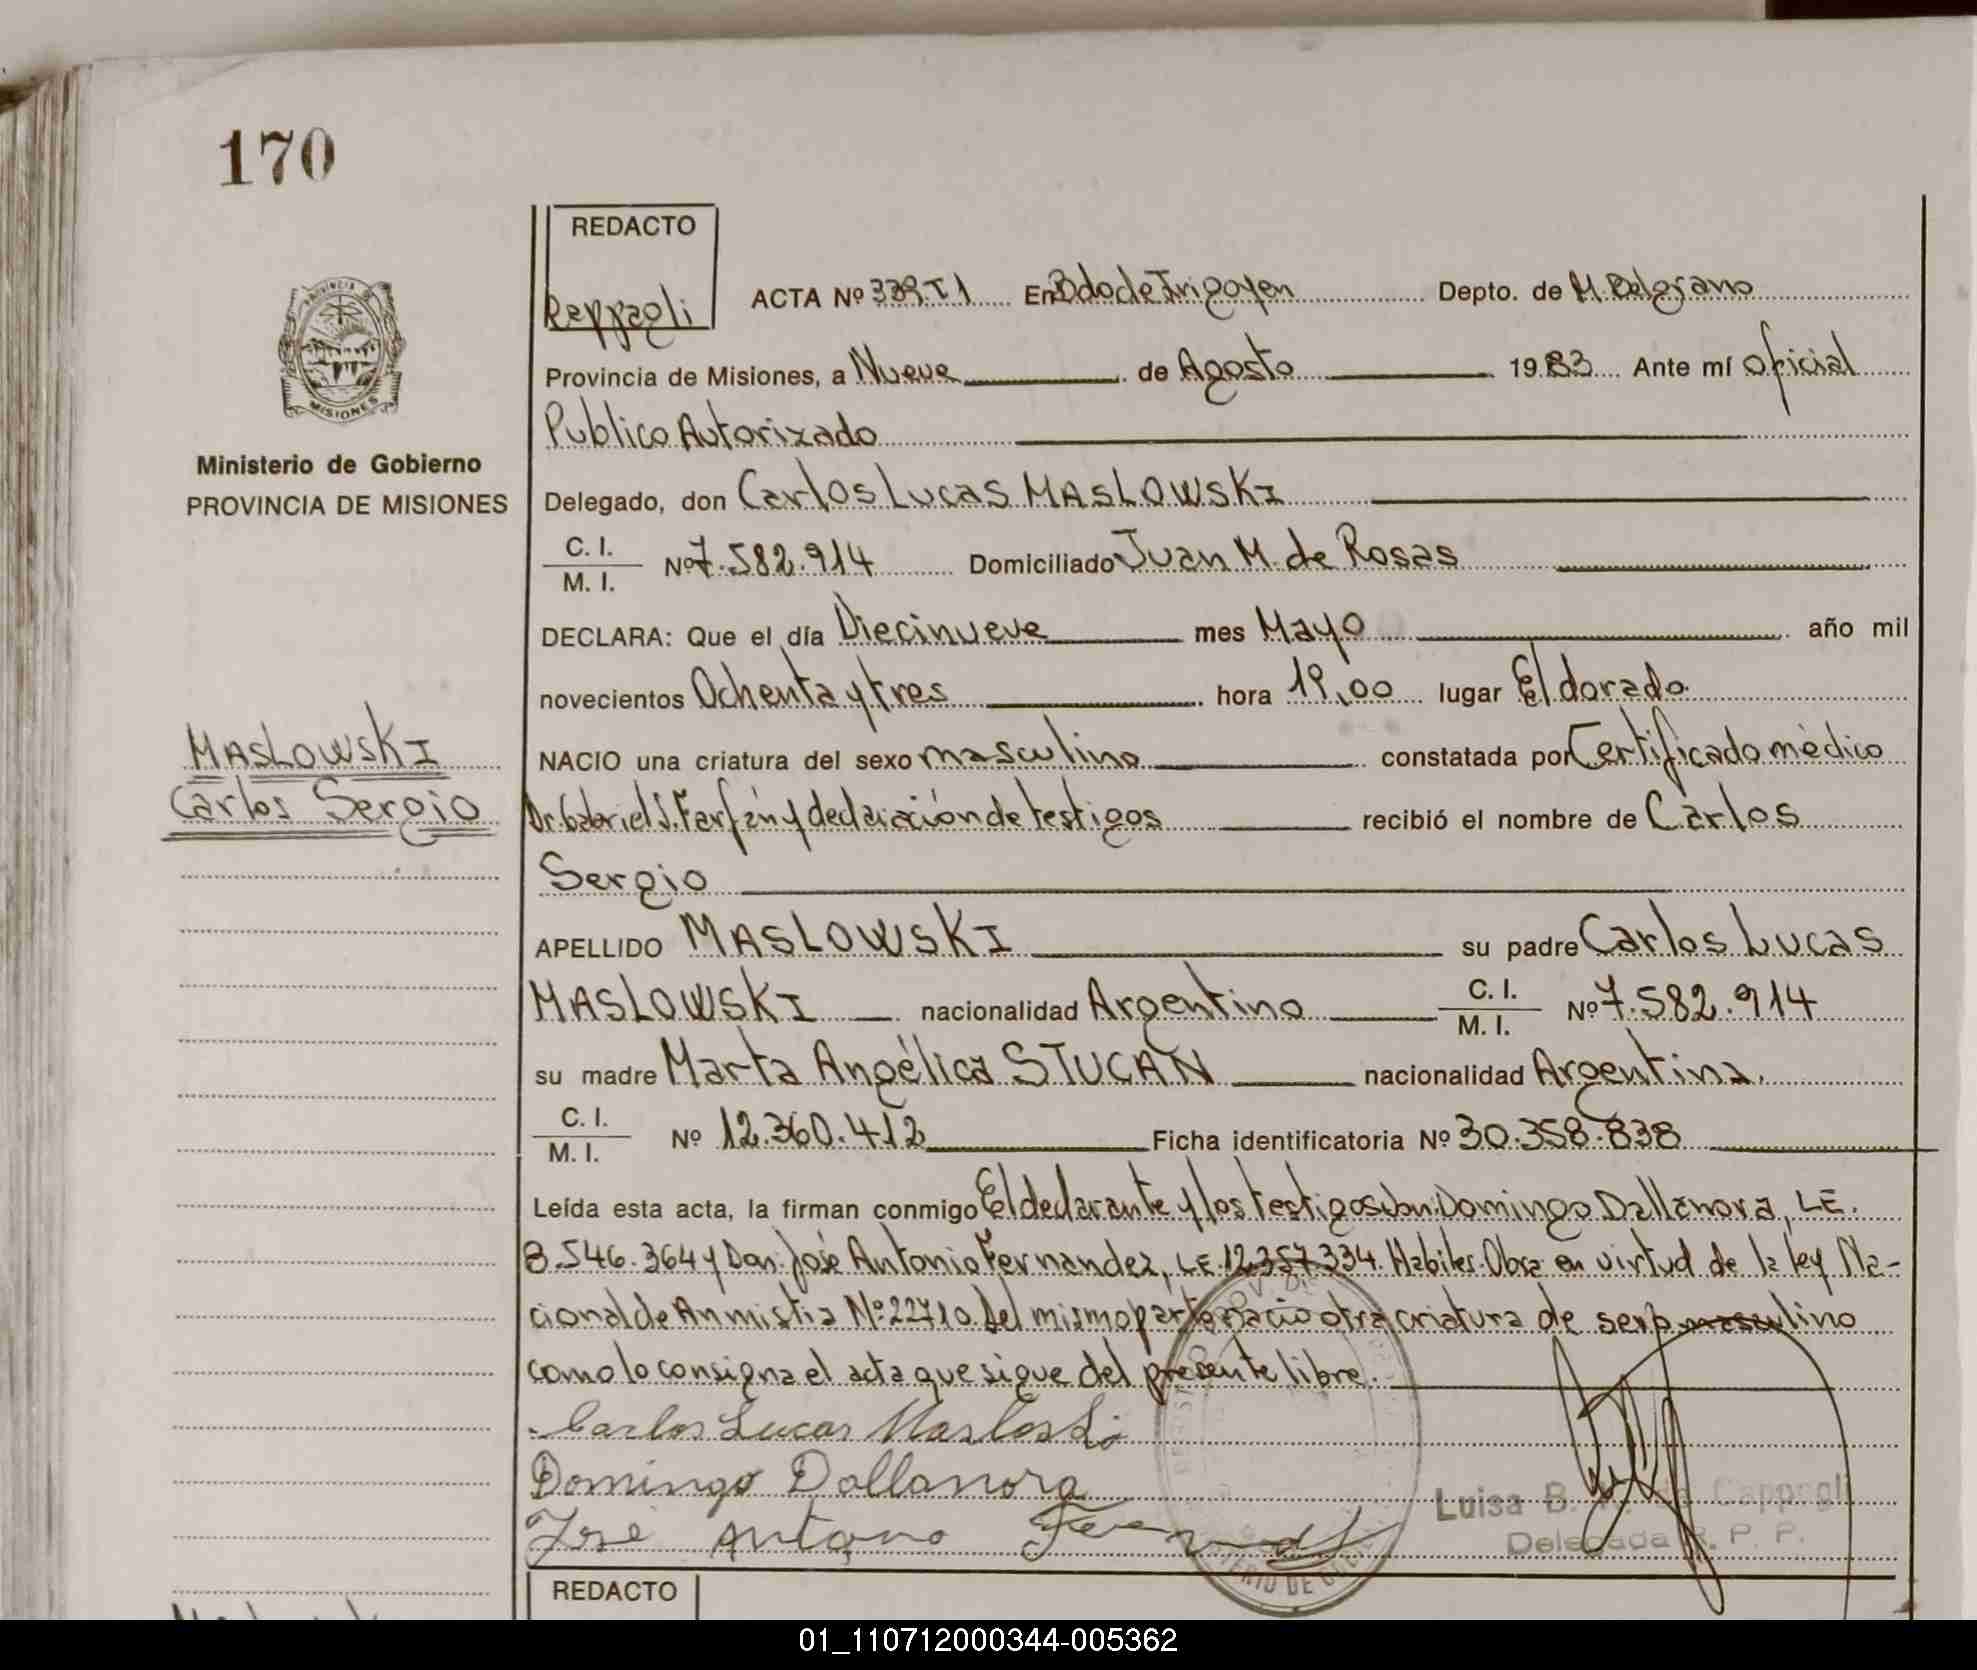 170
REDACTO
Reppagli
ACTA Nº 339 T I En Bdo de Irigoyen Depto. de M. Belgrano
Provincia de Misiones, a Nueve de Agosto 1983 Ante mí oficial
Publico Autorizado
Ministerio de Gobierno
PROVINCIA DE MISIONES
Delegado, don Carlos Lucas MASLOWSKI
C. I.
M. I.
Nº 7.582.914 Domiciliado Juan M. de Rosas
DECLARA: Que el día Diecinueve mes Mayo año mil
novecientos Ochenta y tres hora 19,00 lugar Eldorado
MASLOWSKI
Carlos Sergio
NACIO una criatura del sexo masculino constatada por Certificado médico
Dr. Gabriel S. Farfán y declaración de testigos recibió el nombre de Carlos
Sergio
APELLIDO MASLOWSKI su padre Carlos Lucas
MASLOWSKI nacionalidad Argentino C. I. M. I. Nº 7.582.914
su madre Marta Angélica STUCAN nacionalidad Argentina.
C. I.
M. I.
Nº 12.360.412 Ficha identificatoria Nº 30.358.838
Leída esta acta, la firman conmigo El declarante y los testigos Don: Domingo Dallanora, LE.
8.546.364 y Don: José Antonio Fernandez, LE. 12.357.334. Habiles. Obra en virtud de la ley Na-
cional de Anmistia Nº 22710. Del mismo parto nacio otra criatura de sexo masculino
como lo consigna el acta que sigue del presente libre.
Carlos Lucas Maslowski
Domingo Dallanora
José Antonio
Luisa B.
Delegada R. P. P.
MISIONES
REDACTO
01_110712000344-005362